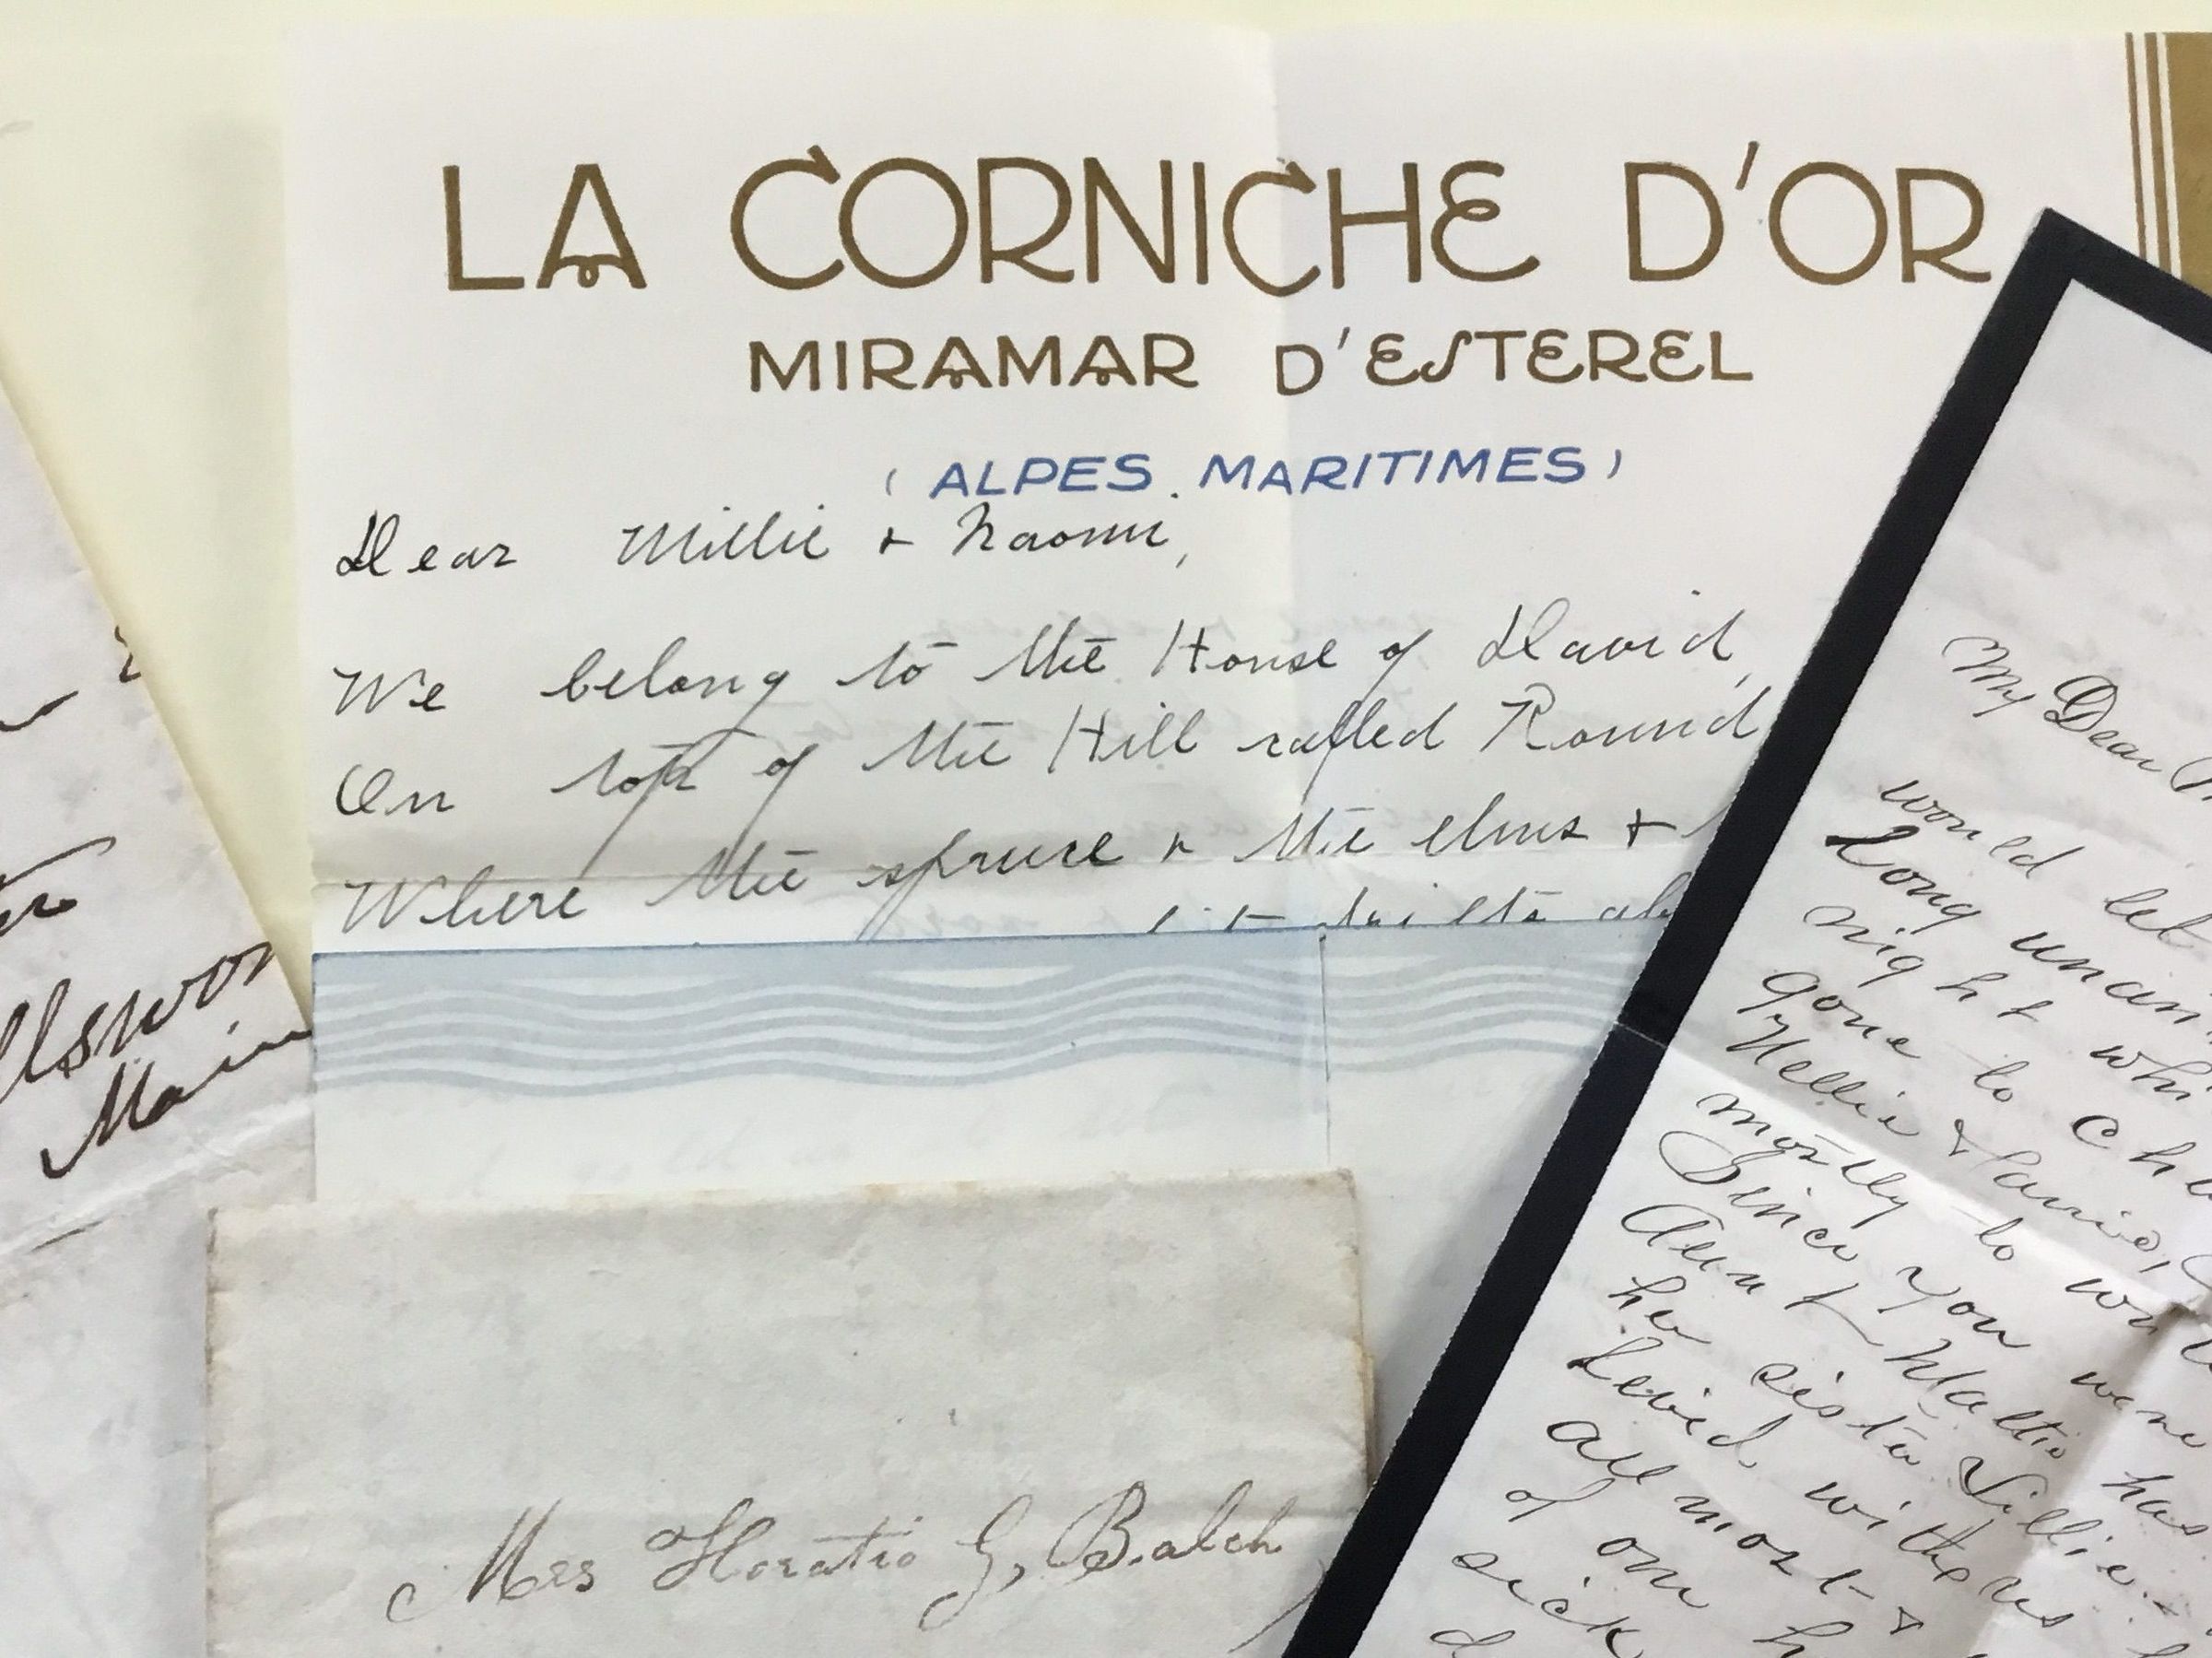 LA CORNICHE D'OR
MIRAMAR D'ESTEREL
(ALPES. MARITIMES)
Dear Millie + Naomi,
We belong to the House of David,
On top of the Hill called Round
Where the spruce + the elms +
Ellswor
Main
Mrs Horatio G, Balch
My Dear
would let
Long unan
night whi
gone to Ch
Nellie &
mostly to wo
Since you were
Aunt Hattie has
her sister Lillie.
lived with us
all most
of our h
sick